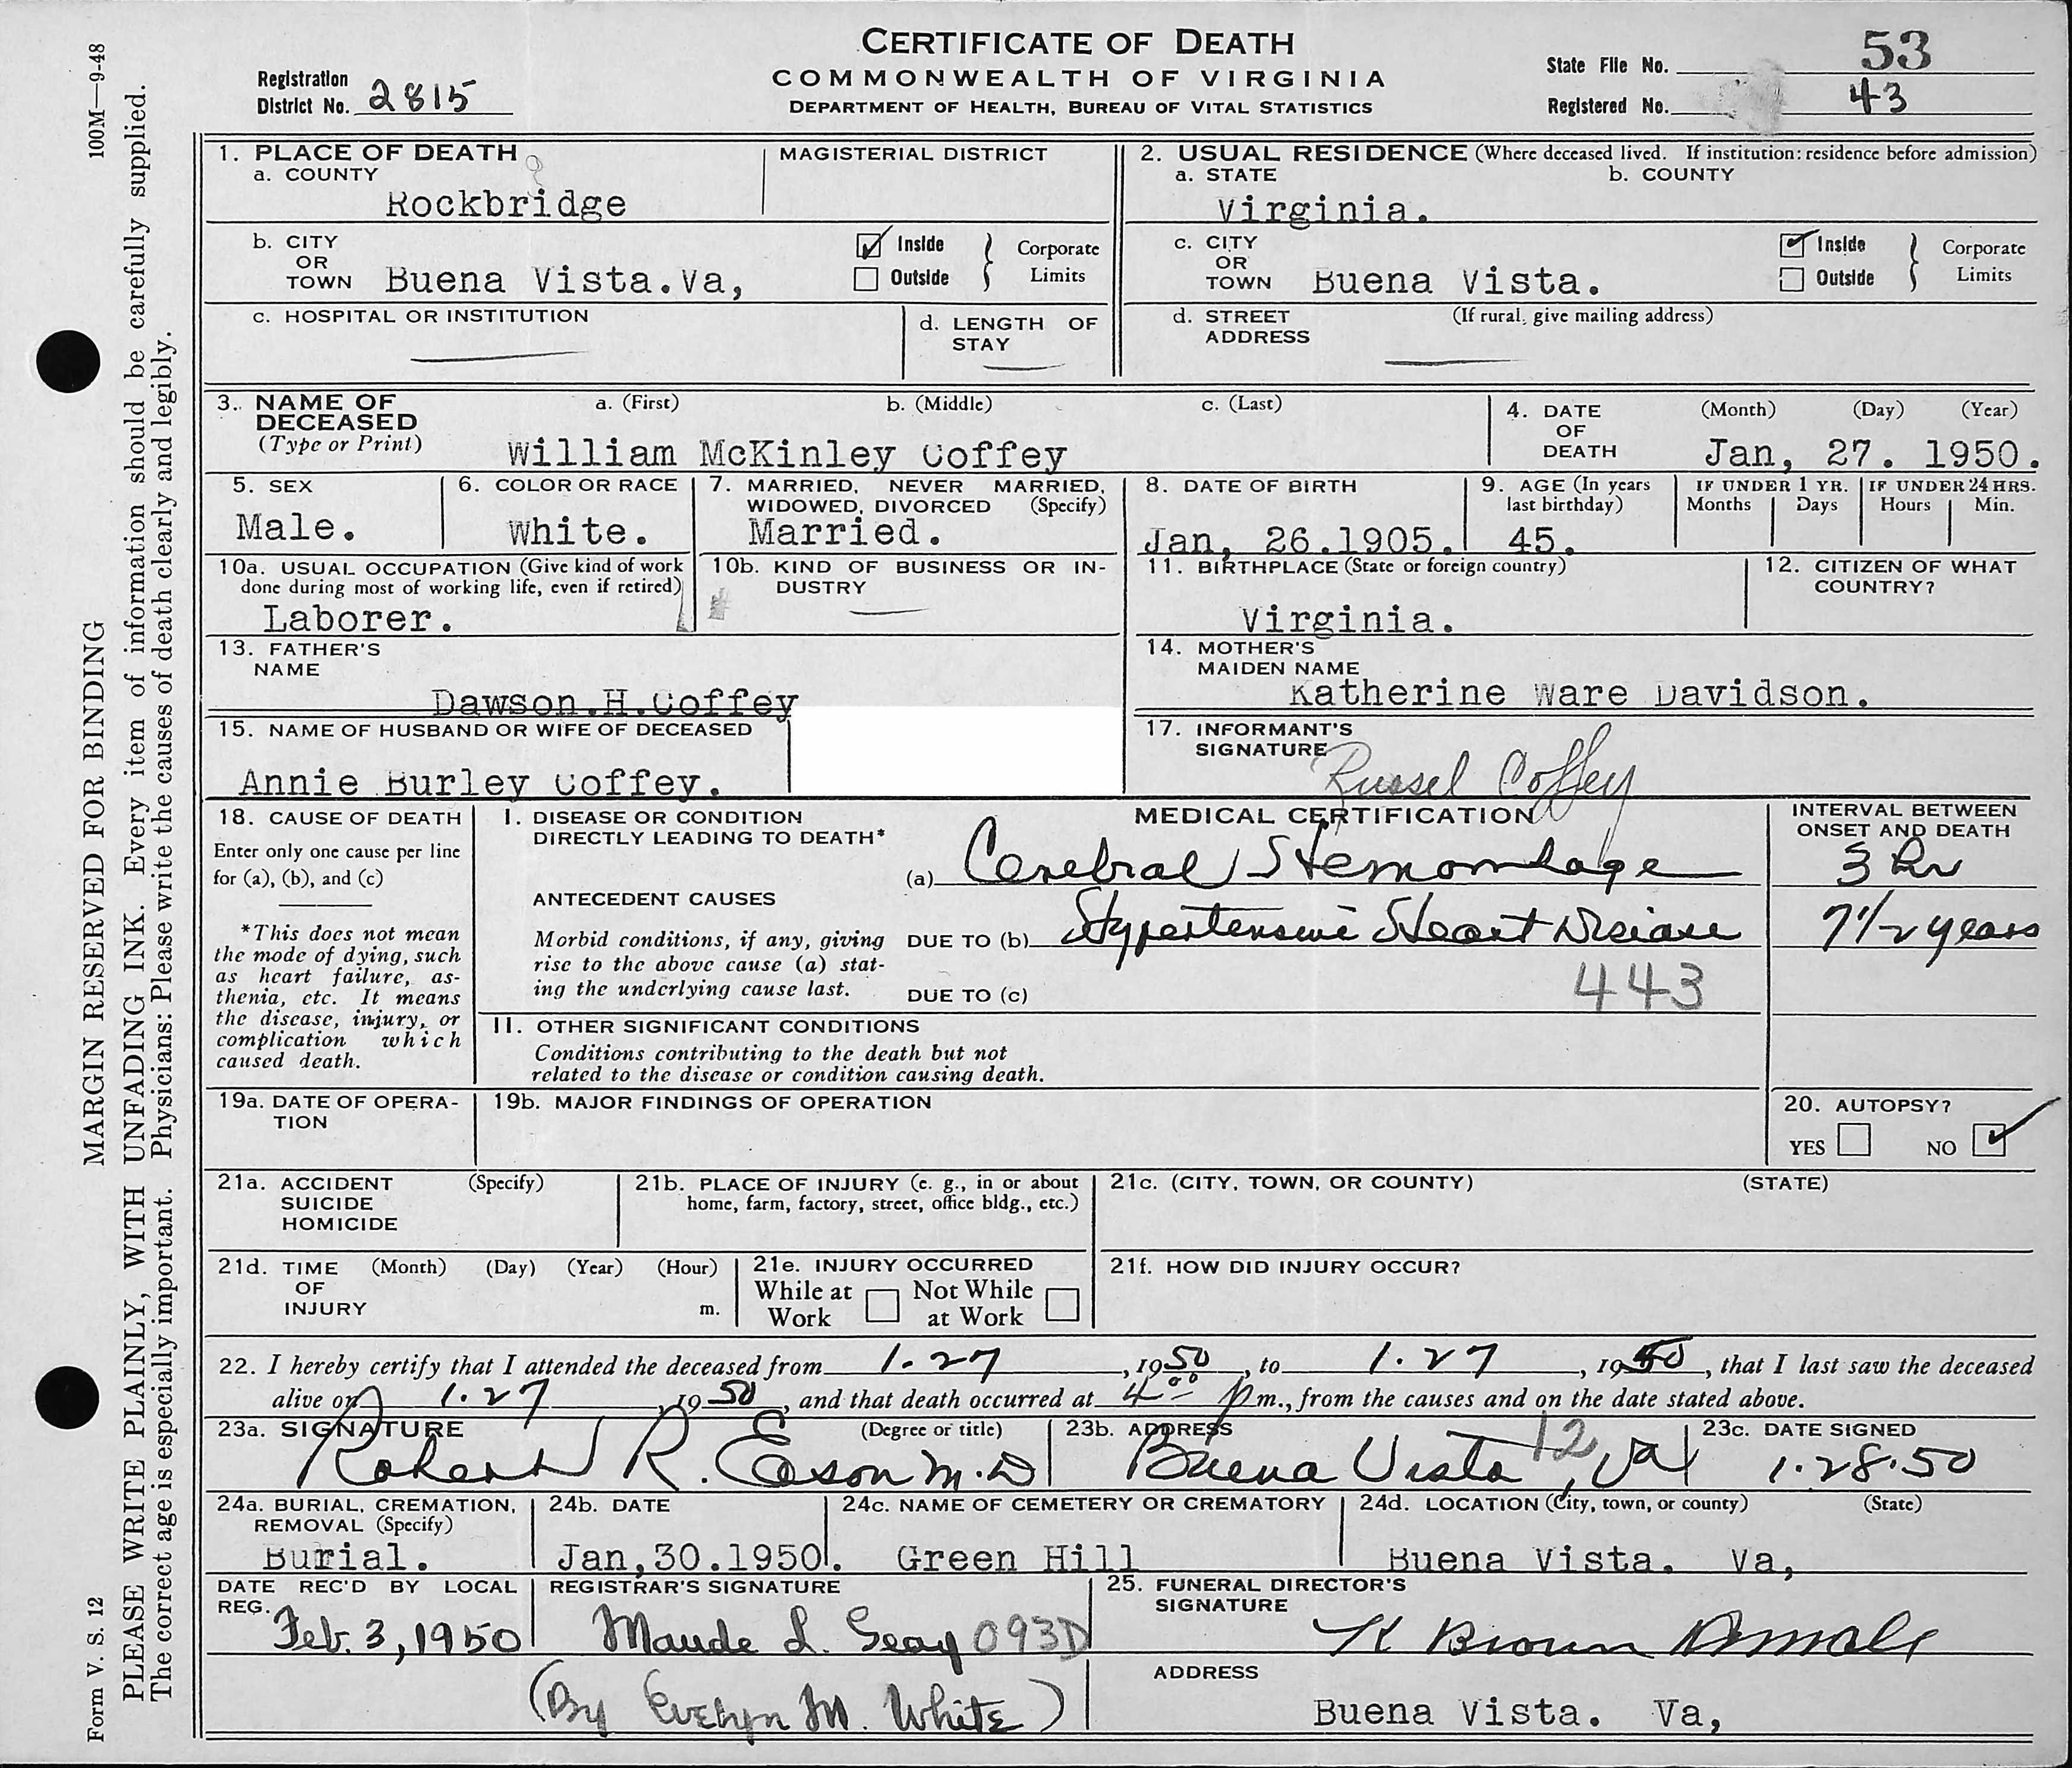 CERTIFICATE OF DEATH
COMMONWEALTH OF VIRGINIA
DEPARTMENT OF HEALTH, BUREAU OF VITAL STATISTICS
Registration
District No. 2815
State File No. 53
Registered No. 43
100M—9-48
MARGIN RESERVED FOR BINDING
PLEASE WRITE PLAINLY, WITH UNFADING INK. Every item of information should be carefully supplied.
The correct age is especially important. Physicians: Please write the causes of death clearly and legibly.
Form V. S. 12
1. PLACE OF DEATH
a. COUNTY
MAGISTERIAL DISTRICT
Rockbridge
2. USUAL RESIDENCE (Where deceased lived. If institution: residence before admission)
a. STATE b. COUNTY
Virginia.
b. CITY OR TOWN Buena Vista.Va,
Inside
Outside
Corporate Limits
c. CITY OR TOWN Buena Vista.
Inside
Outside
Corporate Limits
c. HOSPITAL OR INSTITUTION
d. LENGTH OF STAY
d. STREET ADDRESS (If rural, give mailing address)
3. NAME OF DECEASED
(Type or Print)
a. (First) b. (Middle) c. (Last)
William McKinley Coffey
4. DATE OF DEATH
(Month) (Day) (Year)
Jan, 27. 1950.
5. SEX
Male.
6. COLOR OR RACE
White.
7. MARRIED, NEVER MARRIED, WIDOWED, DIVORCED (Specify)
Married.
8. DATE OF BIRTH
Jan, 26.1905.
9. AGE (In years last birthday)
45.
IF UNDER 1 YR.
Months Days
IF UNDER 24 HRS.
Hours Min.
10a. USUAL OCCUPATION (Give kind of work done during most of working life, even if retired)
Laborer.
10b. KIND OF BUSINESS OR INDUSTRY
11. BIRTHPLACE (State or foreign country)
Virginia.
12. CITIZEN OF WHAT COUNTRY?
13. FATHER'S NAME
Dawson.H.Coffey
14. MOTHER'S MAIDEN NAME
Katherine Ware Davidson.
15. NAME OF HUSBAND OR WIFE OF DECEASED
Annie Burley Coffey.
17. INFORMANT'S SIGNATURE
Russel Coffey
18. CAUSE OF DEATH
Enter only one cause per line
for (a), (b), and (c)
*This does not mean
the mode of dying, such
as heart failure, as-
thenia, etc. It means
the disease, injury, or
complication which
caused death.
MEDICAL CERTIFICATION
I. DISEASE OR CONDITION
DIRECTLY LEADING TO DEATH*
(a) Cerebral Hemorrhage
ANTECEDENT CAUSES
Morbid conditions, if any, giving
rise to the above cause (a) stat-
ing the underlying cause last.
DUE TO (b) Hypertensive Heart Disease
DUE TO (c)
443
INTERVAL BETWEEN
ONSET AND DEATH
3 hr
7 1/2 years
II. OTHER SIGNIFICANT CONDITIONS
Conditions contributing to the death but not
related to the disease or condition causing death.
19a. DATE OF OPERA-
TION
19b. MAJOR FINDINGS OF OPERATION
20. AUTOPSY?
YES NO
21a. ACCIDENT (Specify)
SUICIDE
HOMICIDE
21b. PLACE OF INJURY (e. g., in or about
home, farm, factory, street, office bldg., etc.)
21c. (CITY, TOWN, OR COUNTY) (STATE)
21d. TIME (Month) (Day) (Year) (Hour)
OF
INJURY m.
21e. INJURY OCCURRED
While at Work
Not While at Work
21f. HOW DID INJURY OCCUR?
22. I hereby certify that I attended the deceased from 1-27, 1950, to 1-27, 1950, that I last saw the deceased
alive on 1-27, 1950, and that death occurred at 4 00 p m., from the causes and on the date stated above.
23a. SIGNATURE (Degree or title)
Robert R. M.D
23b. ADDRESS
Buena Vista, Va
12
23c. DATE SIGNED
1-28-50
24a. BURIAL, CREMATION,
REMOVAL (Specify)
Burial.
24b. DATE
Jan,30.1950.
24c. NAME OF CEMETERY OR CREMATORY
Green Hill
24d. LOCATION (City, town, or county) (State)
Buena Vista. Va,
DATE REC'D BY LOCAL
REG.
Feb. 3, 1950
REGISTRAR'S SIGNATURE
Maude L. Seay 093D
(By Evelyn M. White)
25. FUNERAL DIRECTOR'S
SIGNATURE
Brown
ADDRESS
Buena Vista. Va,